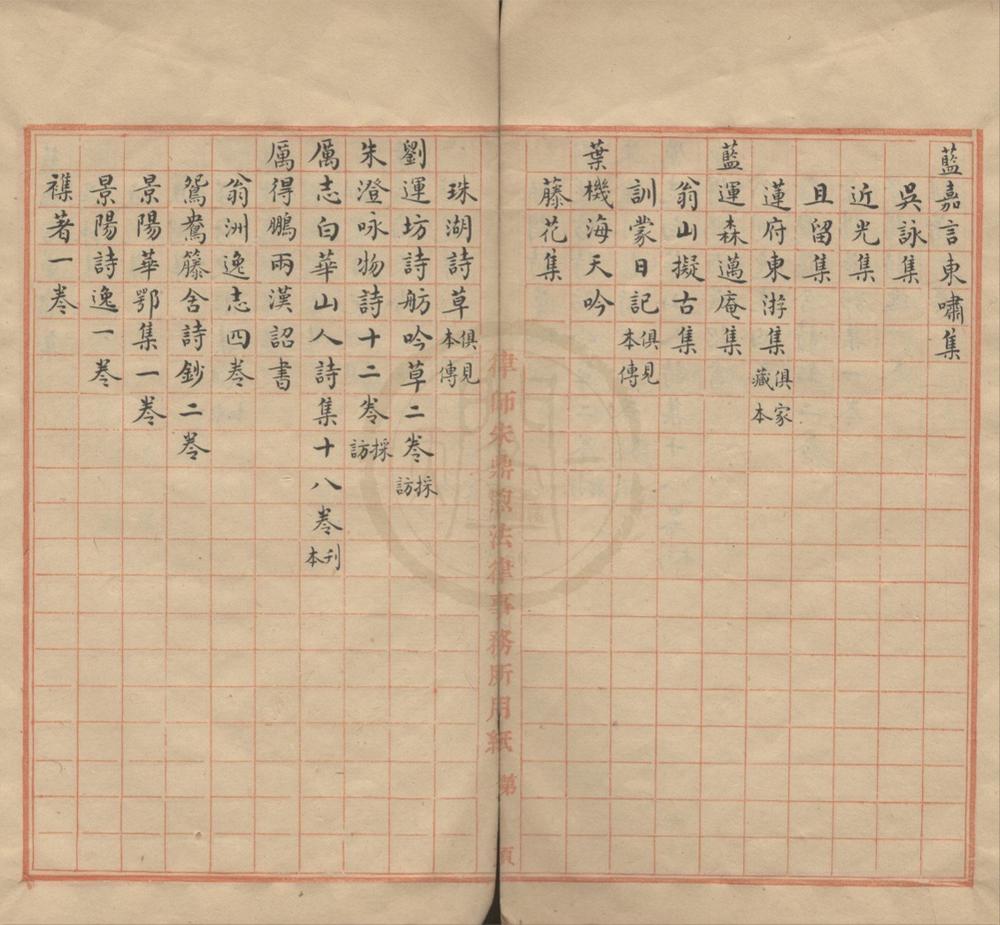 藍嘉言東嘯集
吳詠集
近光集
且留集
蓮府東游集俱家藏本
藍運森邁庵集
翁山擬古集
訓蒙日記俱見傳本
葉機海天吟
藤花集
律師朱鼎煦法律事務所用紙 第 頁
珠湖詩草俱見傳本
劉運坊詩舫吟草二卷採訪
朱澄咏物詩十二卷採訪
厲志白華山人詩集十八卷刊本
厲得鵬兩漢詔書
翁洲逸志四卷
鴛鴦籐舍詩鈔二卷
景陽華鄂集一卷
景陽詩逸一卷
襍著一卷